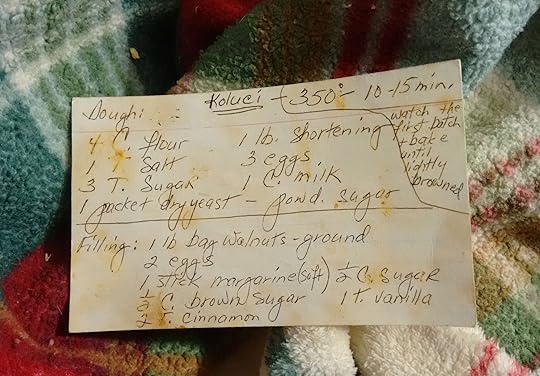 Koluci - 350° - 10-15 min.
Dough:
4 C. flour 1 lb. Shortening
1 T Salt 3 eggs
3 T. Sugar 1 C. milk
1 packet dry yeast - powd. sugar
watch the
first batch
+ bake
until
lightly
browned
Filling: 1 lb bag Walnuts - ground
2 eggs
1 stick margarine (soft) ½ C. Sugar
½ C. brown Sugar 1 t. vanilla
½ T. cinnamon